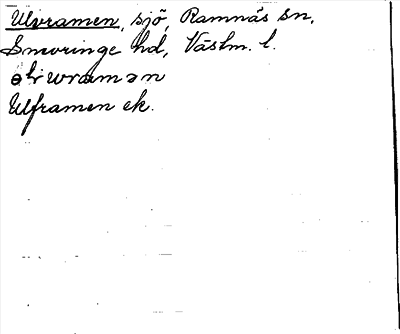 Ulvramen, sjö, Ramnäs sn,
Snevringe hd, Västm. l.
Ulframen ek.